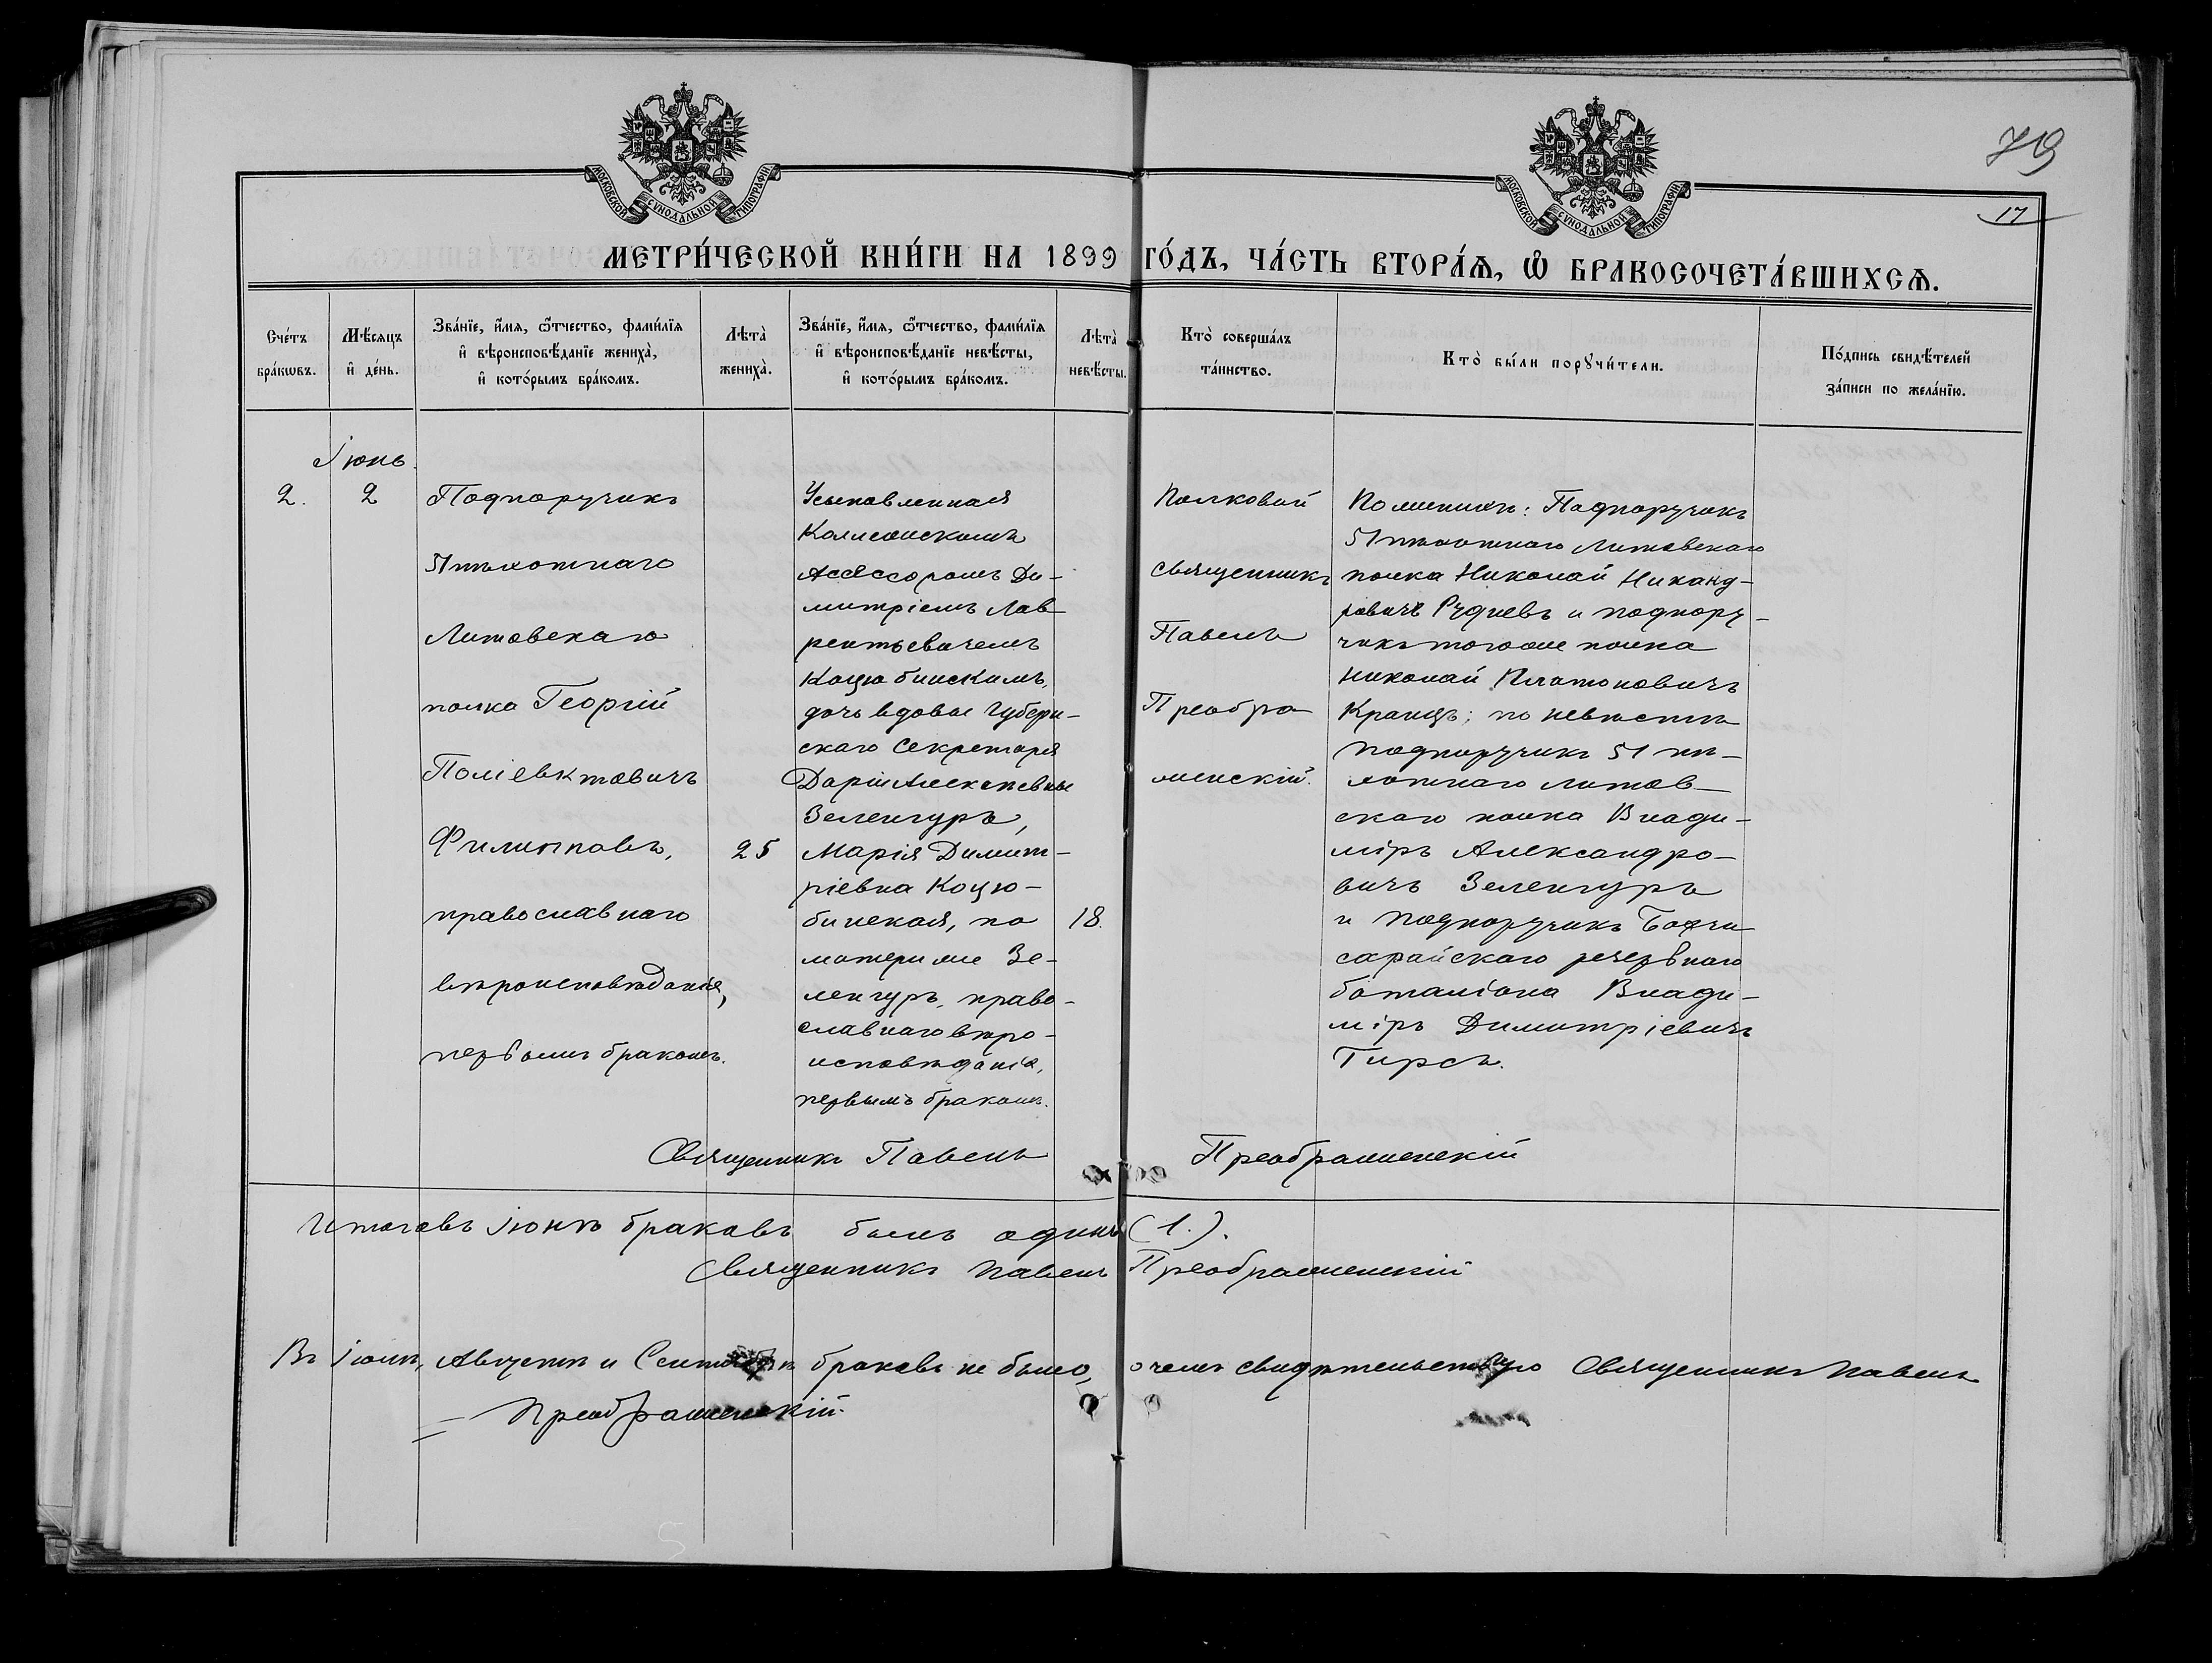 79
17
МОСКОВСКОЙ СѴНОДАЛЬНОЙ ТИПОГРАФІИ
МОСКОВСКОЙ СѴНОДАЛЬНОЙ ТИПОГРАФІИ
МЕТРИ́ЧЕСКОЙ КНИ́ГИ НА 1899 ГО́ДЪ, ЧА́СТЬ ВТОРА́Ѧ, Ѽ БРАКОСОЧЕТА́ВШИХСѦ.
Сче́тъ
бра́кѡвъ.
Мѣ́сяцъ
и҆ де́нь.
Зва́нїе, и҆́мя, ѻ҆́тчество, фами́лїя
и҆ вѣроисповѣ́данїе жениха̀,
и҆ кото́рымъ бра́комъ.
Лѣта̀
жениха̀.
Зва́нїе, и҆́мя, ѻ҆́тчество, фами́лїя
и҆ вѣроисповѣ́данїе невѣ́сты,
и҆ кото́рымъ бра́комъ.
Лѣта̀
невѣ́сты.
Кто̀ соверша́лъ
та́инство.
Кто̀ бы́ли порꙋчи́тели.
По́дпись свидѣ́телей
за́писи по жела́нїю.
Іюнь.
2.
2
Подпоручикъ
51 пѣхотнаго
Литовскаго
полка Георгій
Поліевктовичъ
Филипповъ,
православнаго
вѣроисповѣданія,
первымъ бракомъ.
25
Усыновленная
Коллежскимъ
Ассессоромъ Ди-
митріемъ Лав-
рентьевичемъ
Коцюбинскимъ,
дочь вдовы Губерн-
скаго Секретаря
Даріи Алексѣевны
Зеленгуръ,
Марія Димит-
ріевна Коцю-
бинская, по
матери же Зе-
ленгуръ, право-
славнаго вѣро-
исповѣданія,
первымъ бракомъ.
18.
Полковой
священникъ
Павелъ
Преобра
женскій.
По женихѣ: Подпоручикъ
51 пѣхотнаго Литовскаго
полка Николай Никанд-
ровичъ Рудневъ и подпору-
чикъ того же полка
Николай Платоновичъ
Кранцъ; по невѣстѣ
Подпоручикъ 51 пѣ-
хотнаго Литов-
скаго полка Влади-
міръ Александро-
вичъ Зеленгуръ
и Подпоручикъ Бахчи
сарайскаго резервнаго
баталіона Влади-
міръ Димитріевичъ
Тирсъ.
Священникъ Павелъ Преображенскій
Итого въ Іюнѣ браковъ былъ одинъ (1.).
Священникъ Павелъ Преображенскій
Въ Іюлѣ, Августѣ и Сентябрѣ браковъ не было, о чемъ свидѣтельствую Священникъ Павелъ
Преображенскій